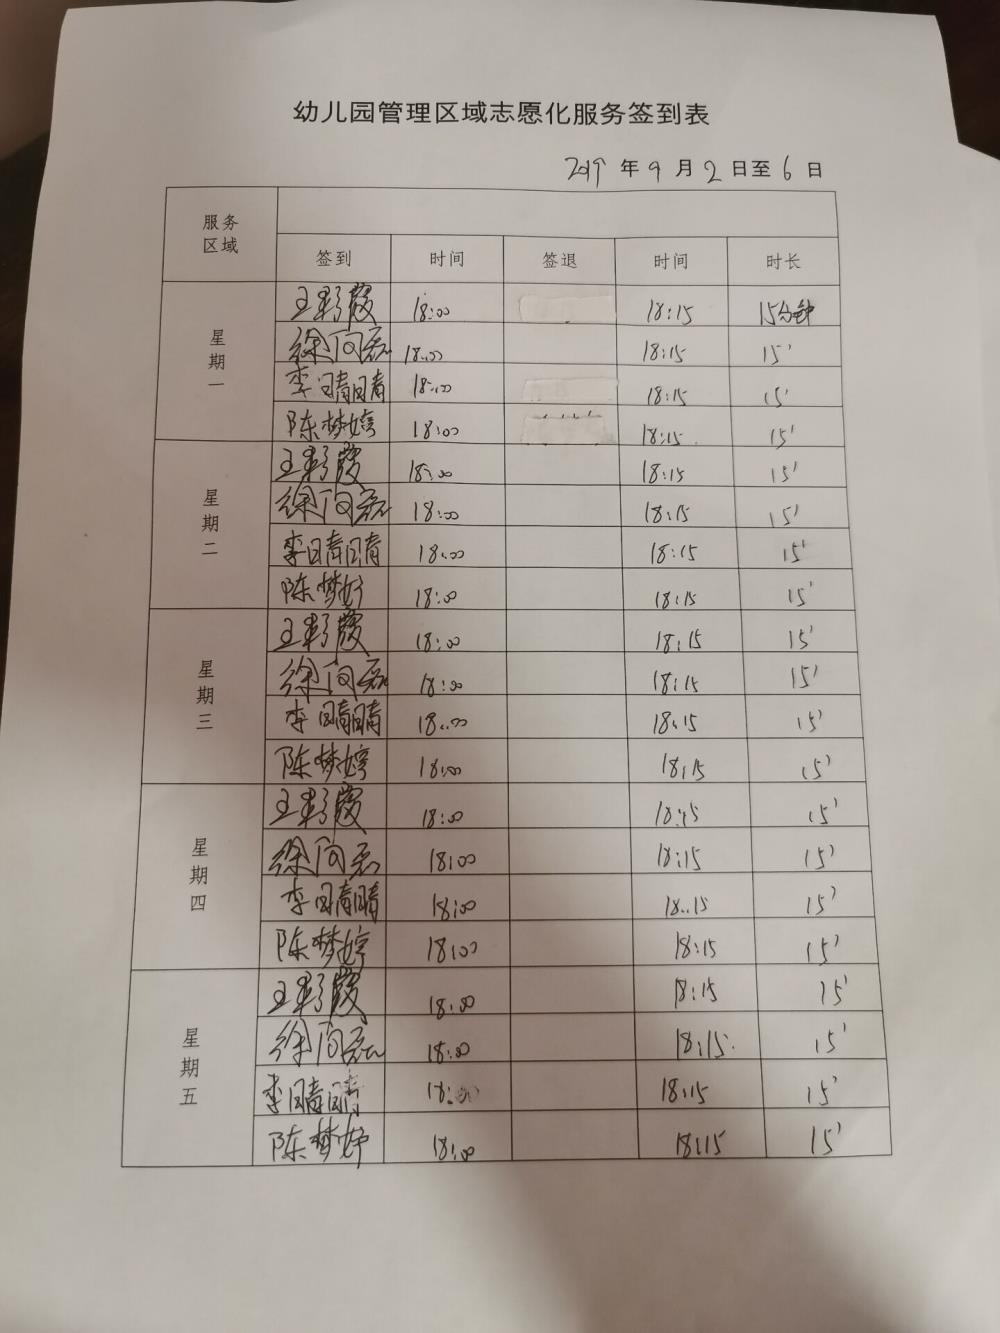 幼儿园管理区域志愿化服务签到表
2019年9月2日至6日
服务区域
签到 时间 签退 时间 时长
星期一
王彩霞 18:00 18:15 15分钟
徐向磊 18:00 18:15 15'
李晴晴 18:00 18:15 15'
陈梦婷 18:00 18:15 15'
星期二
王彩霞 18:00 18:15 15'
徐向磊 18:00 18:15 15'
李晴晴 18:00 18:15 15'
陈梦婷 18:00 18:15 15'
星期三
王彩霞 18:00 18:15 15'
徐向磊 18:00 18:15 15'
李晴晴 18:00 18:15 15'
陈梦婷 18:00 18:15 15'
星期四
王彩霞 18:00 18:15 15'
徐向磊 18:00 18:15 15'
李晴晴 18:00 18:15 15'
陈梦婷 18:00 18:15 15'
星期五
王彩霞 18:00 18:15 15'
徐向磊 18:00 18:15 15'
李晴晴 18:00 18:15 15'
陈梦婷 18:00 18:15 15'